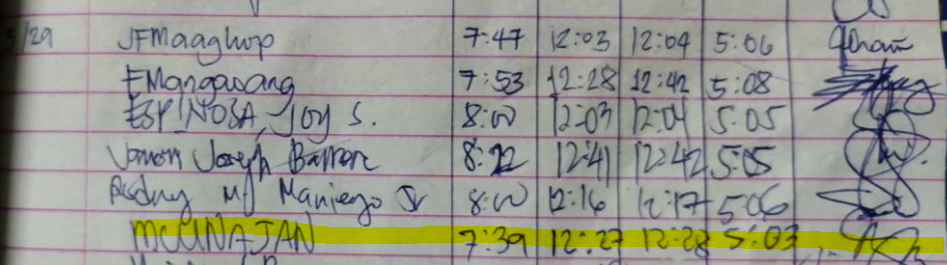 5/29 JFMaaghop 7:47 12:03 12:04 5:06
FMangawang 7:53 12:28 12:42 5:08
ESPINOSA, Joy S. 8:00 12:03 12:04 5:05
Joseph 8:22 12:41 12:42 5:05
MJ Maniego Jr 8:00 12:16 12:17 5:06
MCUNAJAN 7:39 12:27 12:28 5:03